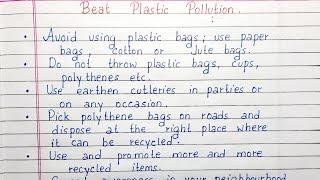 Beat Plastic Pollution.
• Avoid using plastic bags; use paper
bags, cotton or Jute bags.
• Do not throw plastic bags, cups,
polythenes etc.
• Use earthen cutleries in parties or
on any occasion.
• Pick polythene bags on roads and
dispose at the right place where
it can be recycled.
• Use and promote more and more
recycled items.
in your neighbourhood